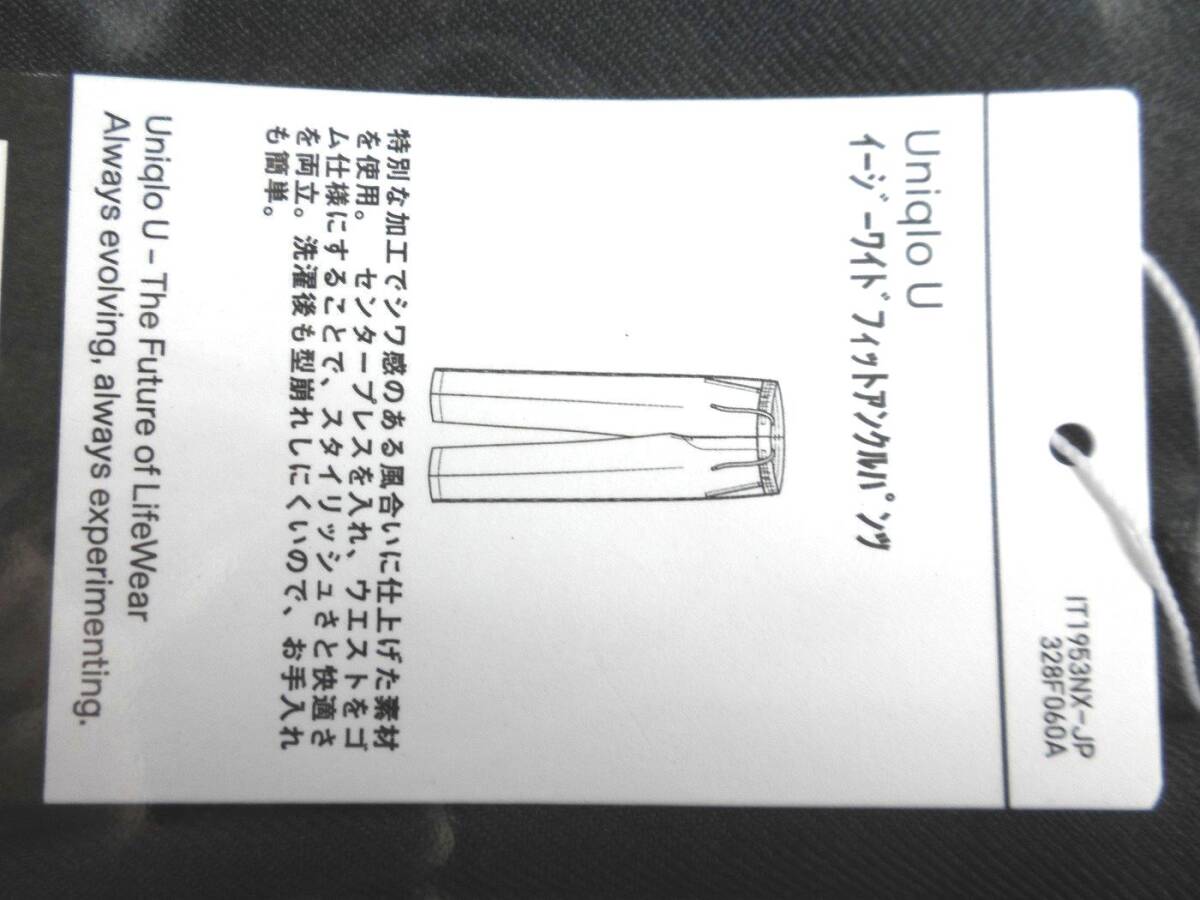 IT1953NX-JP
328F060A
Uniqlo U
ｲｰｼﾞｰﾜｲﾄﾞﾌｨｯﾄｱﾝｸﾙﾊﾟﾝﾂ
特別な加工でシワ感のある風合いに仕上げた素材
を使用。 センタープレスを入れ、ウエストをゴ
ム仕様にすることで、スタイリッシュさと快適さ
を両立。洗濯後も型崩れしにくいので、お手入れ
も簡単。
Uniqlo U – The Future of LifeWear
Always evolving, always experimenting.